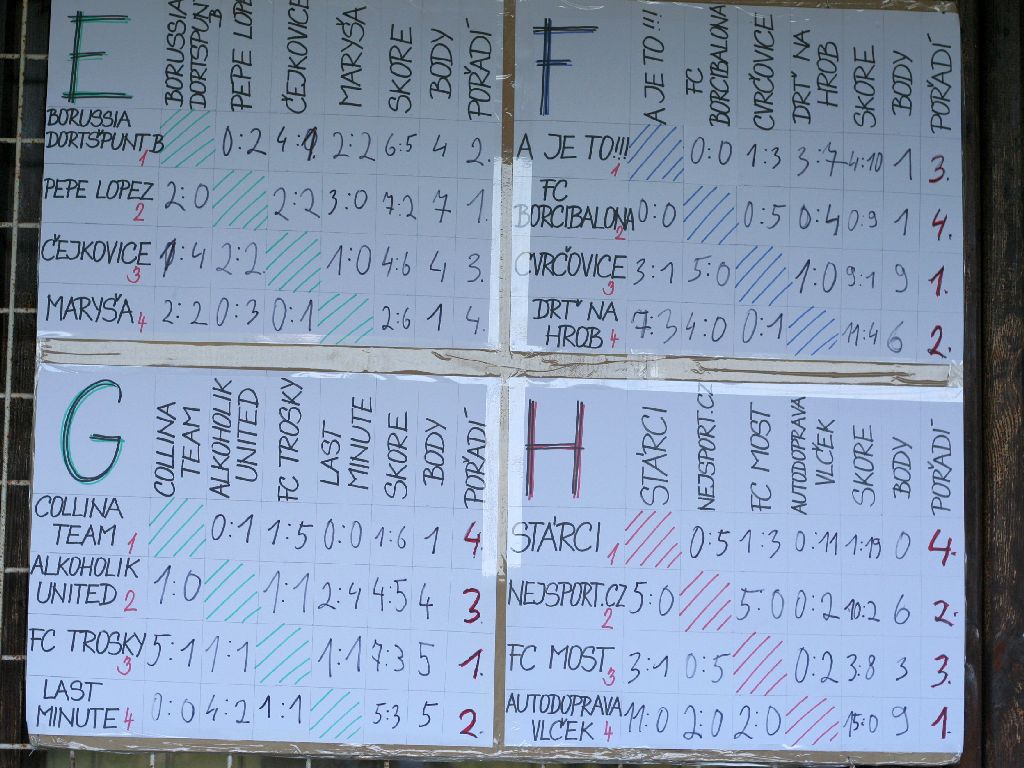 E BORUSSIA DORTŠPUNT B PEPE LOPEZ ČEJKOVICE MARYŠA SKORE BODY POŘADÍ
BORUSSIA
DORTŠPUNT B 1 0:2 4:1 2:2 6:5 4 2.
PEPE LOPEZ 2 2:0 2:2 3:0 7:2 7 1.
ČEJKOVICE 3 1:4 2:2 1:0 4:6 4 3.
MARYŠA 4 2:2 0:3 0:1 2:6 1 4.
F A JE TO!!! FC BORCIBALONA CVRČOVICE DRŤ NA HROB SKORE BODY POŘADÍ
A JE TO!!! 1 0:0 1:3 3:7 4:10 1 3.
FC
BORCIBALONA 2 0:0 0:5 0:4 0:9 1 4.
CVRČOVICE 3 3:1 5:0 1:0 9:1 9 1.
DRŤ NA
HROB 4 7:3 4:0 0:1 11:4 6 2.
G COLLINA TEAM ALKOHOLIK UNITED FC TROSKY LAST MINUTE SKORE BODY POŘADÍ
COLLINA
TEAM 1 0:1 1:5 0:0 1:6 1 4.
ALKOHOLIK
UNITED 2 1:0 1:1 2:4 4:5 4 3.
FC TROSKY 3 5:1 1:1 1:1 7:3 5 1.
LAST
MINUTE 4 0:0 4:2 1:1 5:3 5 2.
H STÁRCI NEJSPORT.CZ FC MOST AUTODOPRAVA VLČEK SKORE BODY POŘADÍ
STÁRCI 1 0:5 1:3 0:11 1:19 0 4.
NEJSPORT.CZ 2 5:0 5:0 0:2 10:2 6 2.
FC MOST 3 3:1 0:5 0:2 3:8 3 3.
AUTODOPRAVA
VLČEK 4 11:0 2:0 2:0 15:0 9 1.